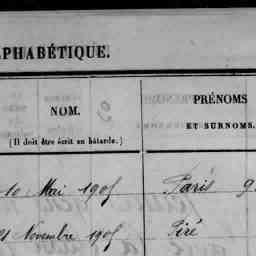 PHABÉTIQUE.
NOM.
(Il doit être écrit en bâtarde.)
PRÉNOMS
ET SURNOMS.
10 Mai 1905 Paris
21 Novembre 1905 Piré